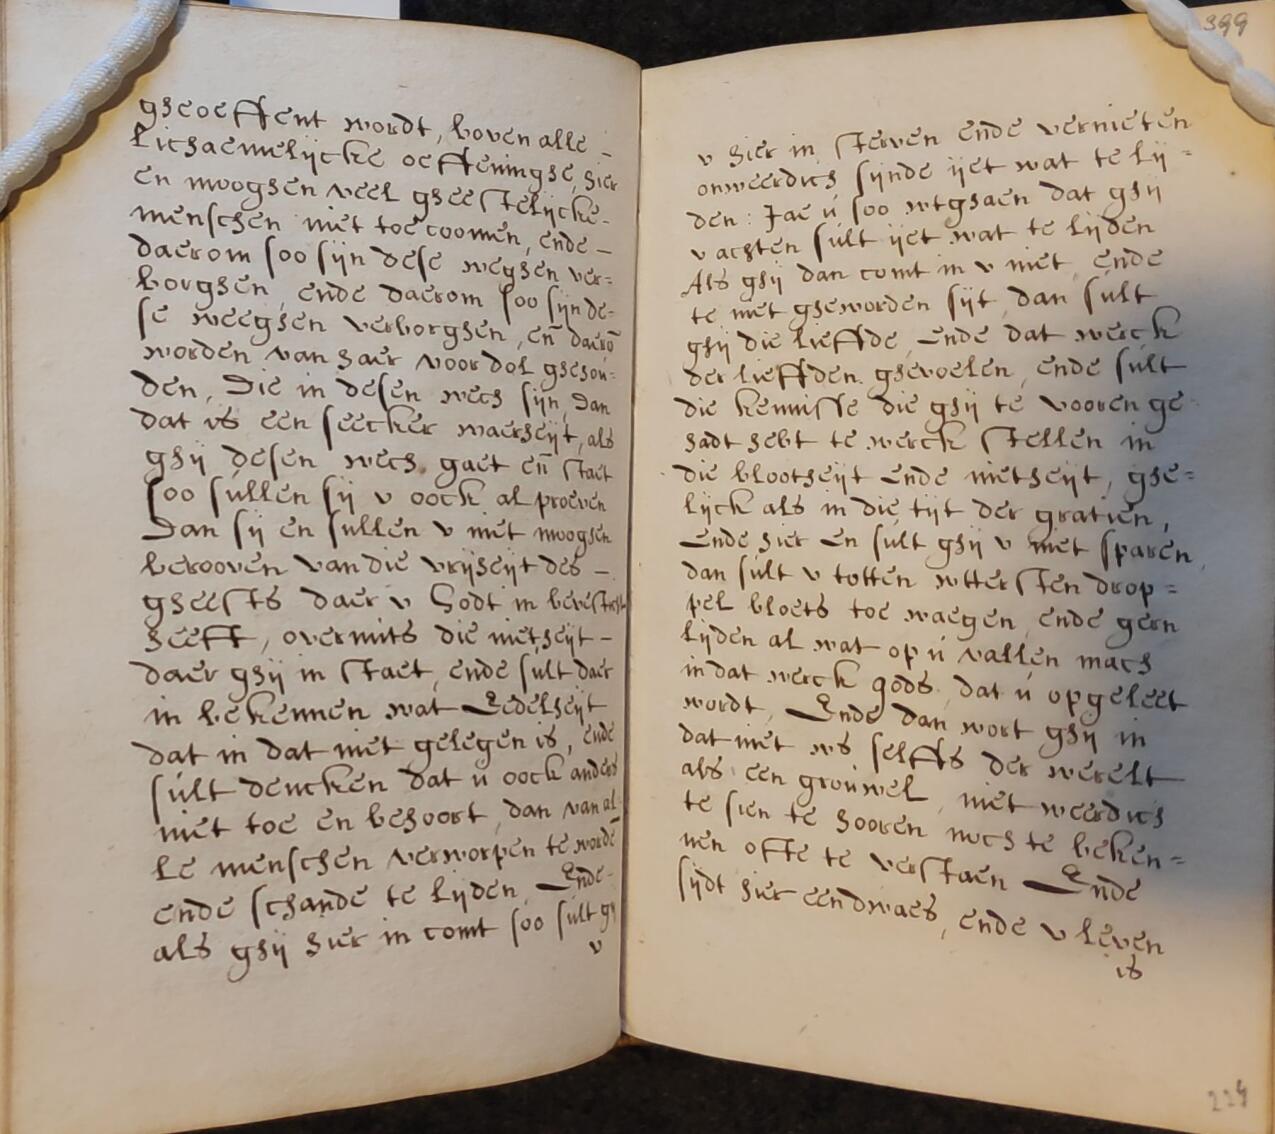 gheoeffent wordt, boven alle -
lichaemelijcke oeffeninghe, hier
en mooghen veel gheestelijcke -
menschen niet toe coomen, ende -
daerom soo sijn dese weghen ver=
borghen, ende daerom soo sijn de=
se weeghen verborghen, en̄ daerō
worden van haer voor dol ghehou=
den, Die in desen wech sijn, Dan
dat is een seecker waerheijt, als
ghij desen wech gaet en̄ staet
soo sullen sij v oock al proeven
Dan sij en sullen v niet mooghen
berooven van die vrijheijt des -
gheests daer v Godt in bevesticht
heefft, overmits die nietheijt -
daer ghij in staet, ende sult daer
in bekennen wat Eedelheijt
dat in dat niet gelegen is, ende
sult dencken dat ú oock anders
niet toe en behoort, dan van al-
le menschen verworpen te wordē
ende schande te lijden, Ende-
als ghij hier in comt soo sult ghij
v
399
v hier in sterven ende vernieten
onweerdich sijnde ijet wat te lij=
den: Jae ú soo wtghaen dat ghij
v achten sult ijet wat te lijden
Als ghij dan comt in v niet, ende
te niet gheworden sijt, dan sult
ghij die lieffde, Ende dat werck
der lieffden ghevoelen, ende sult
die kennisse die ghij te vooren ge
hadt hebt te werck stellen in
die blootheijt Ende nietheijt, ghe=
lijck als in die tijt der gratien,
Ende hier En sult ghij v niet sparen,
dan sult v totten wttersten drop=
pel bloets toe waegen, ende gern
lijden al wat op ú vallen mach
in dat werck gods, dat ú opgeleet
wordt, Ende dan wort ghij in
dat niet ws selffs der werelt
als een grouwel, niet weerdich
te sien te hooren noch te beken=
nen offte te verstaen Ende
sijdt hier een dwaes, ende v leven
is
224